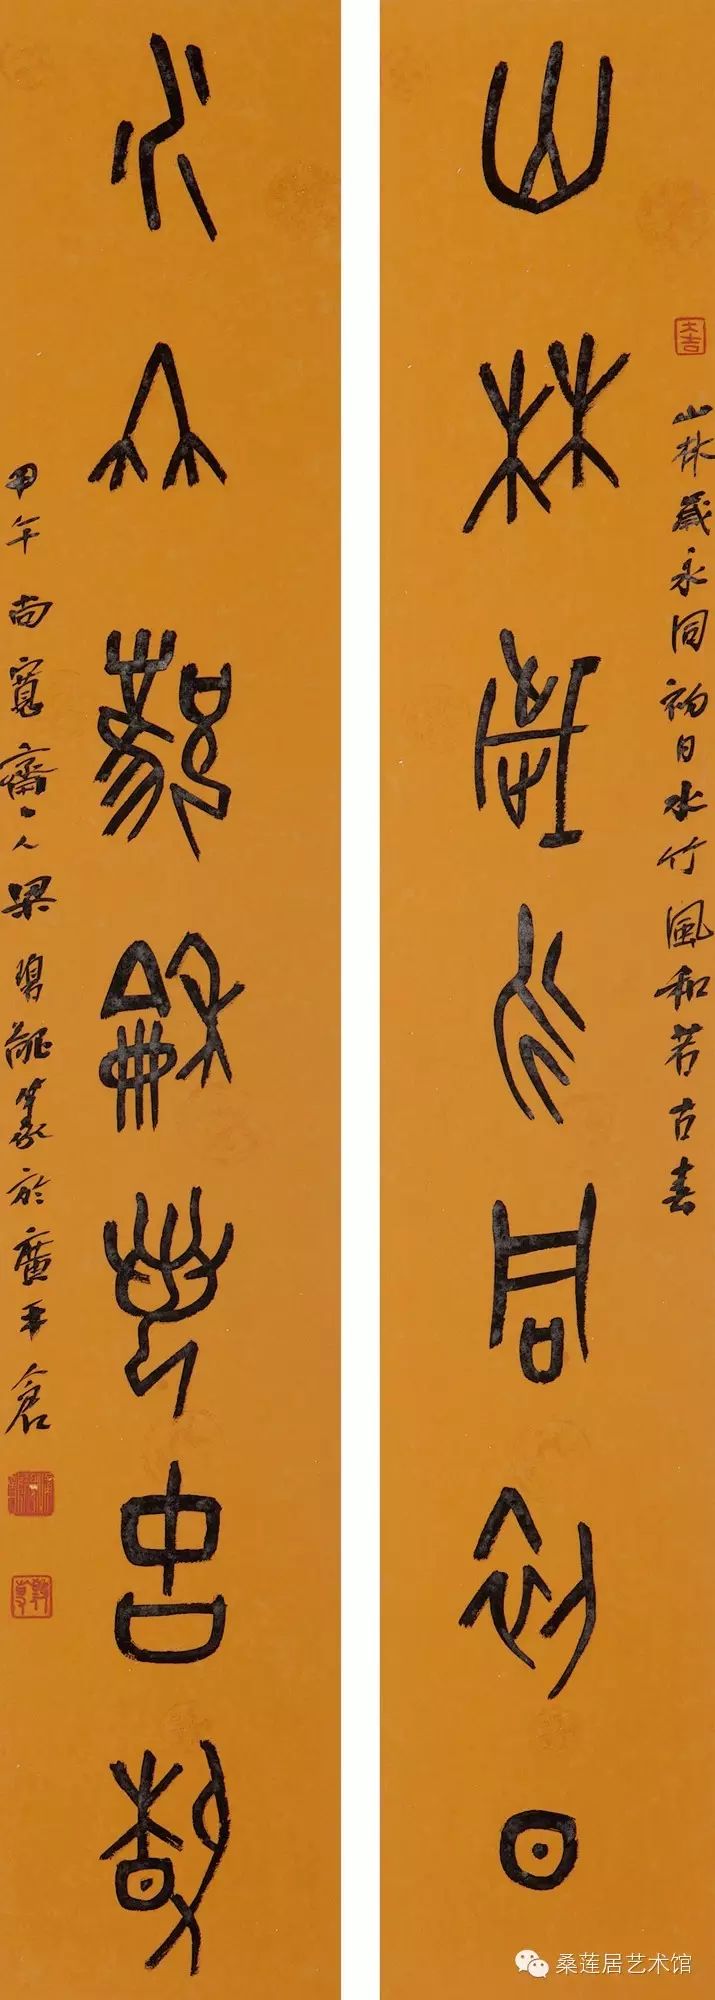 大吉
山林歲永同初日水竹風和若古春
山林歲永同初日
水竹風和若古春
甲午尚寬齋人梁碧篆於廣倉
桑莲居艺术馆